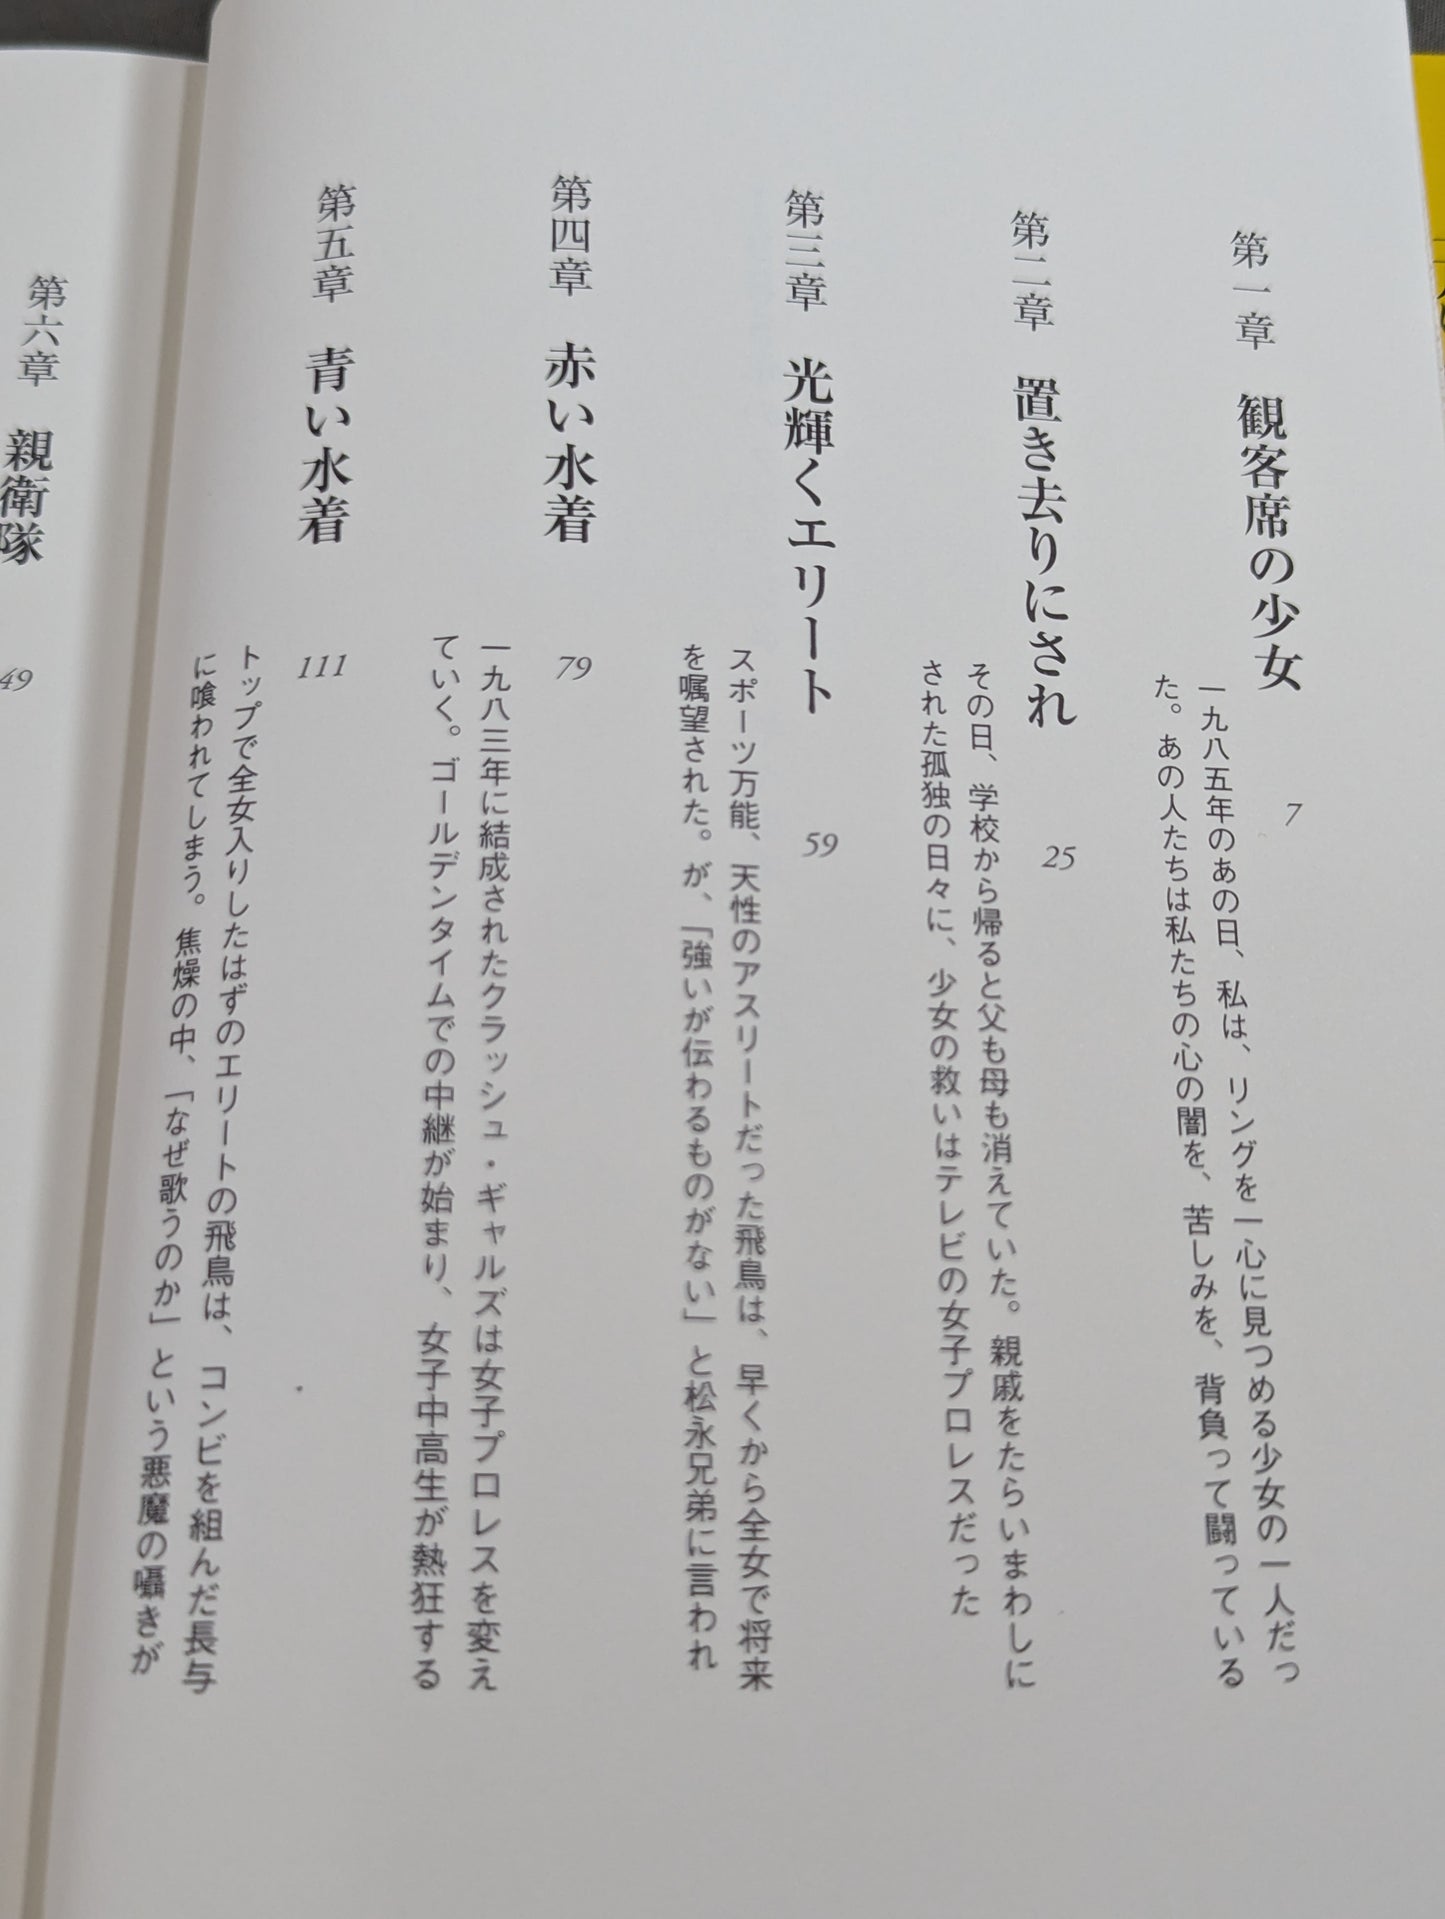 第一章 観客席の少女 7
一九八五年のあの日、私は、リングを一心に見つめる少女の一人だっ
た。あの人たちは私たちの心の闇を、苦しみを、背負って闘っている
第二章 置き去りにされ 25
その日、学校から帰ると父も母も消えていた。親戚をたらいまわしに
された孤独の日々に、少女の救いはテレビの女子プロレスだった
第三章 光輝くエリート 59
スポーツ万能、天性のアスリートだった飛鳥は、早くから全女で将来
を嘱望された。が、「強いが伝わるものがない」と松永兄弟に言われ
第四章 赤い水着 79
一九八三年に結成されたクラッシュ・ギャルズは女子プロレスを変え
ていく。ゴールデンタイムでの中継が始まり、女子中高生が熱狂する
第五章 青い水着 111
トップで全女入りしたはずのエリートの飛鳥は、コンビを組んだ長与
に喰われてしまう。焦燥の中、「なぜ歌うのか」という悪魔の囁きが
第六章 親衛隊 49